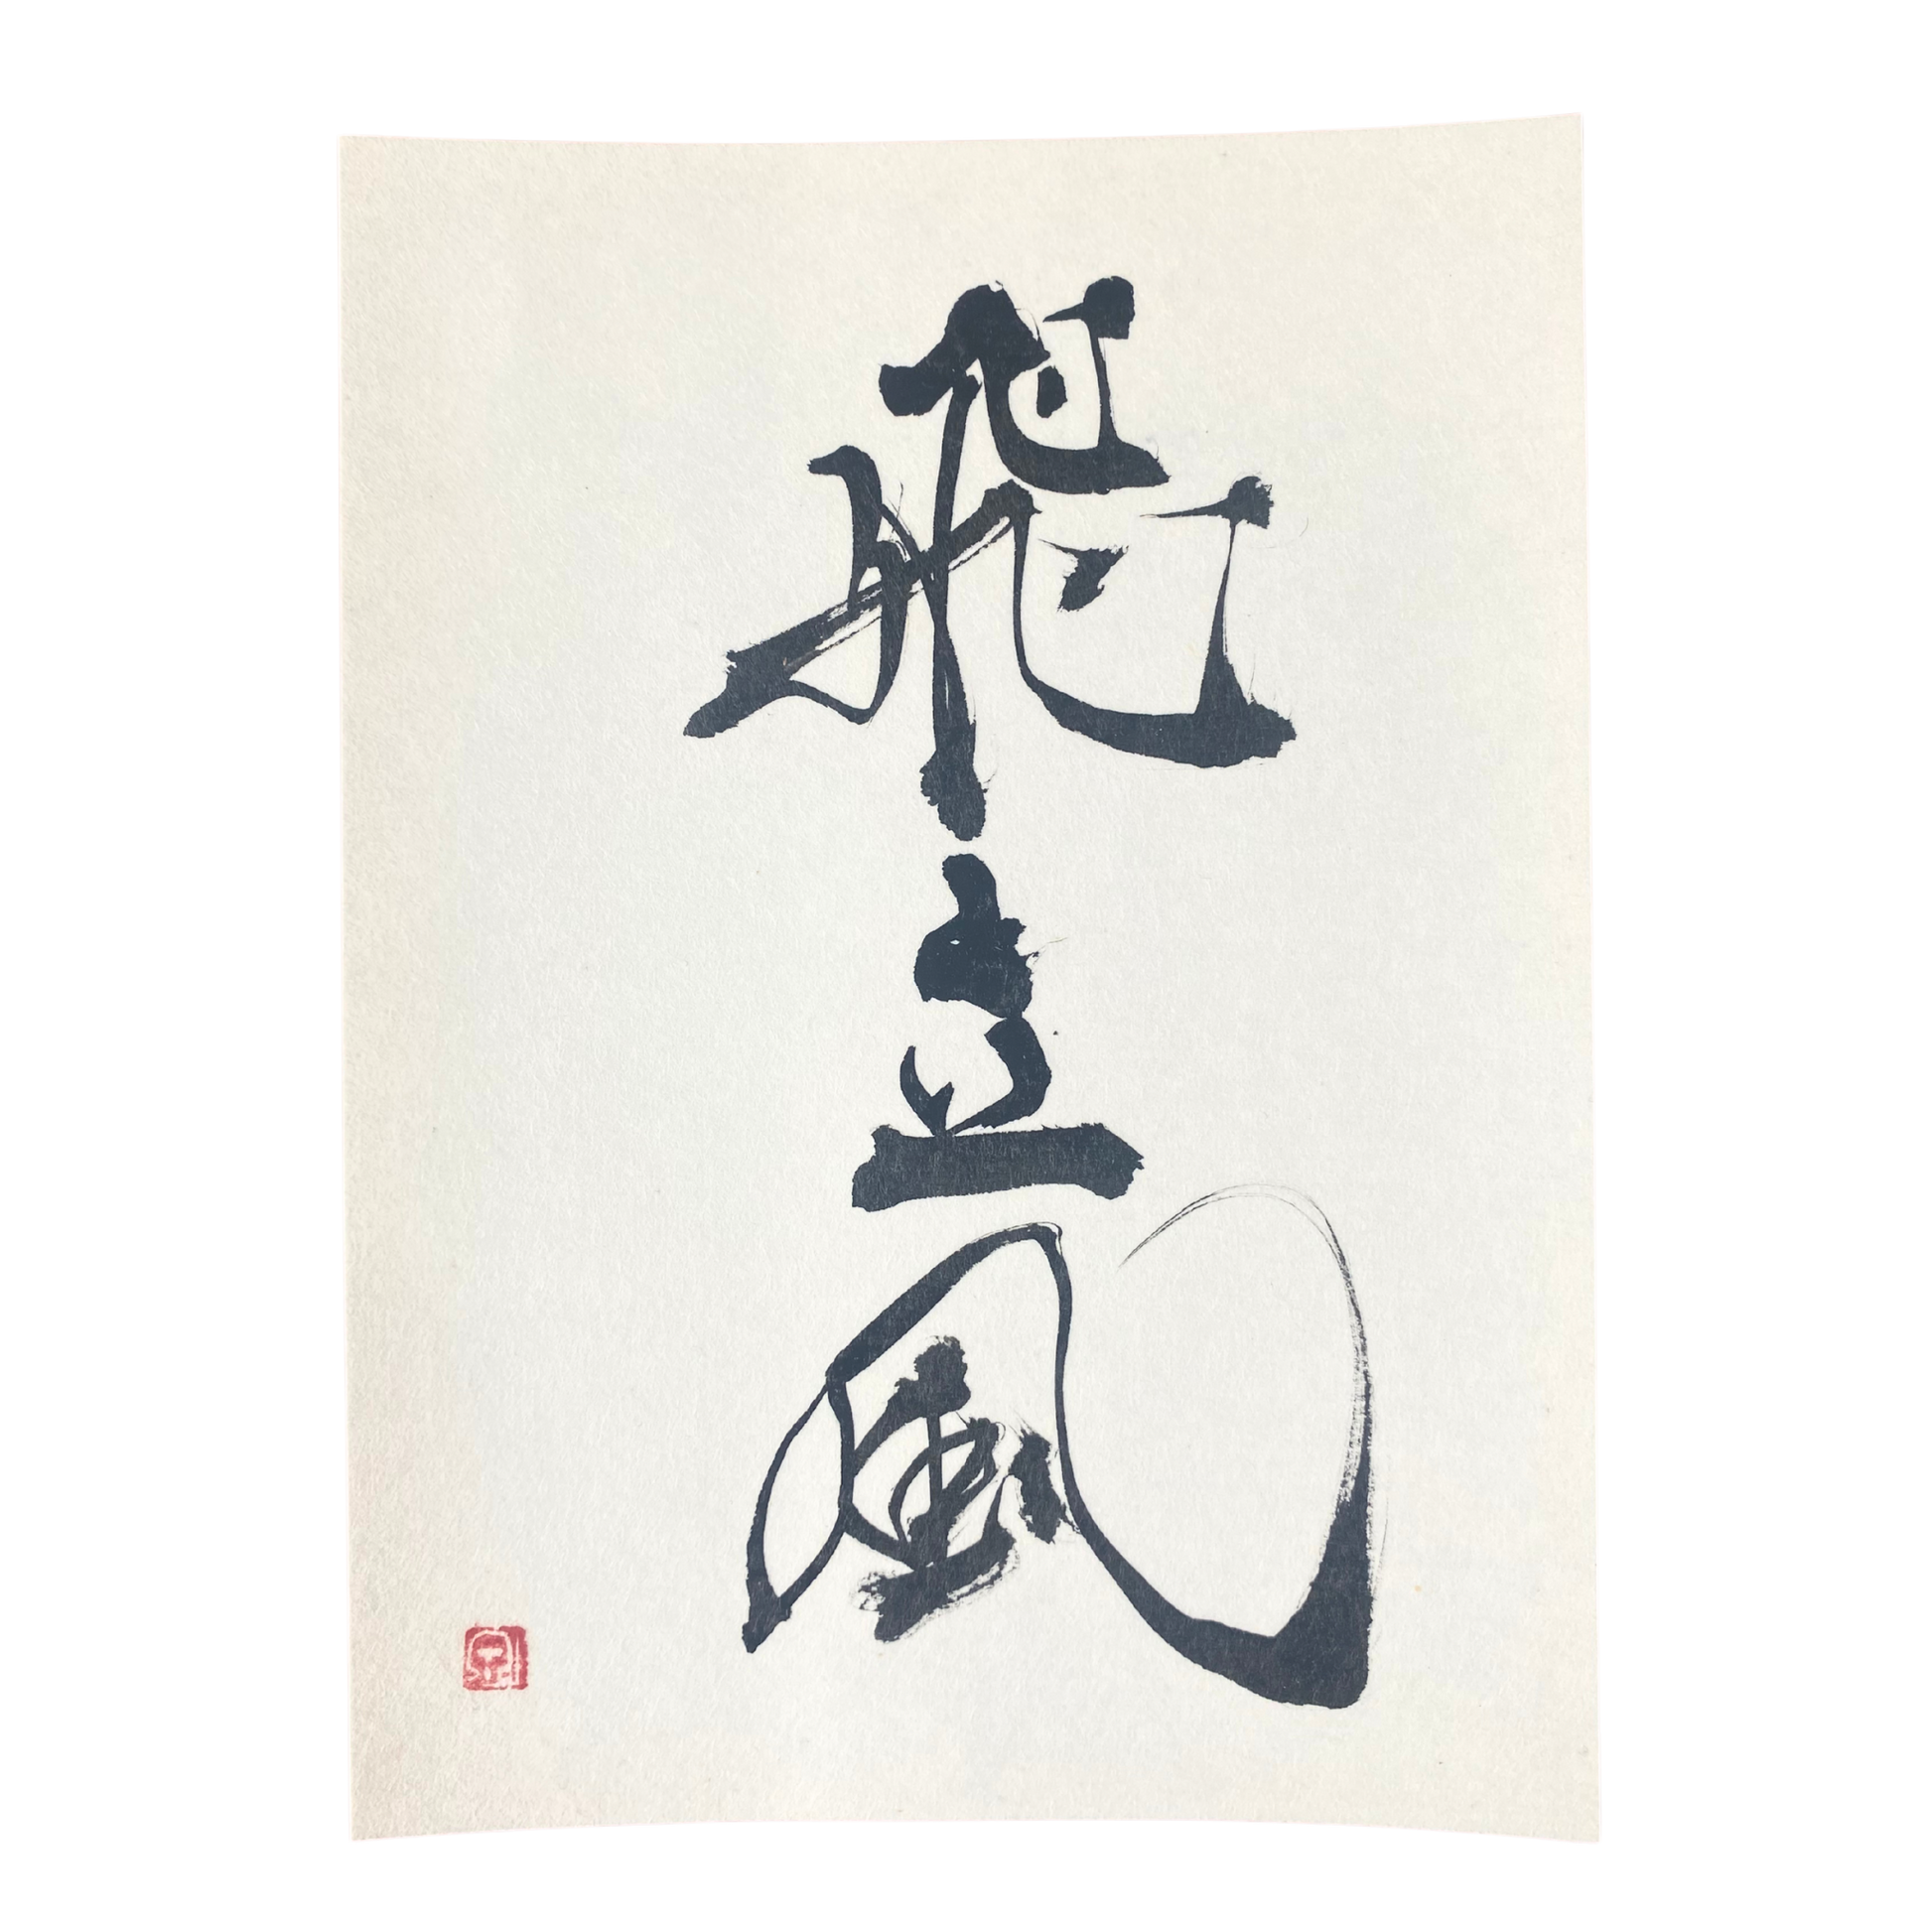 飛立風